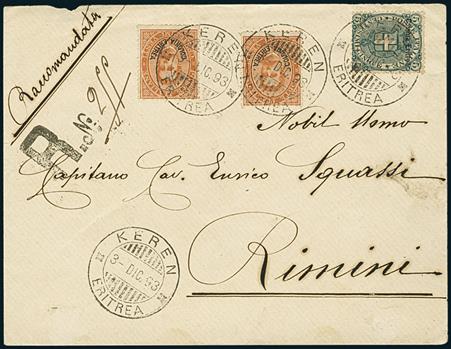 Raccomandata
KEREN
DIC.93
ERITREA
KEREN
DIC.93
ERITREA
5
ERITREA
R
No. 255
Nobil Uomo
Capitano Cav. Enrico Squassi
Rimini
KEREN
3- DIC.93
ERITREA